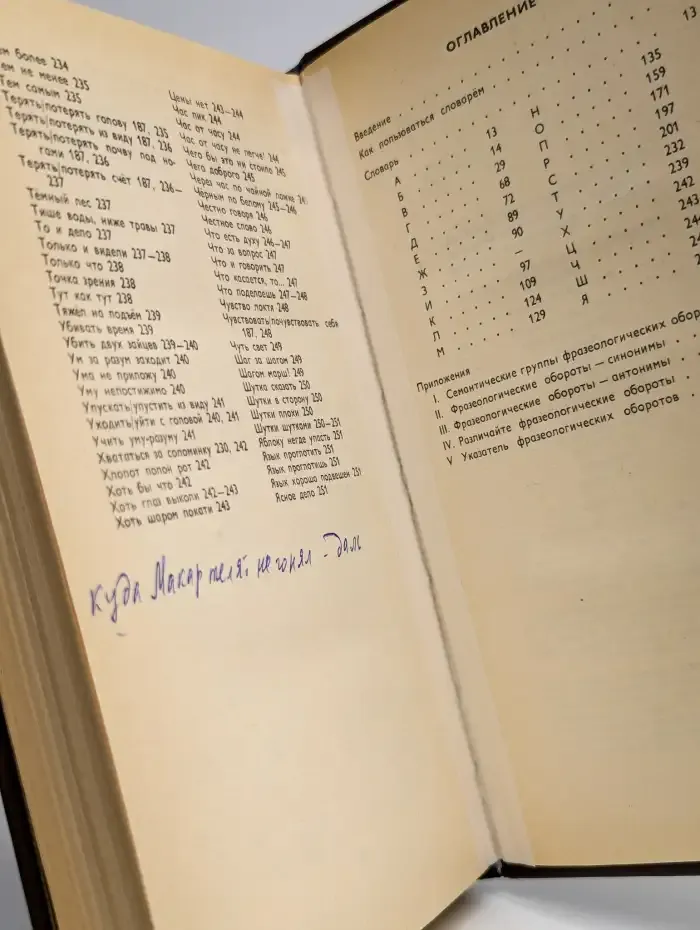 более 234
не менее 235
Тем самым 235
Терять|потерять голову 187, 235
Терять|потерять из виду 187, 236
Терять|потерять почву под но-
гами 187, 236
Терять|потерять счёт 187, 236–
237
Темный лес 237
Тише воды, ниже травы 237
То и дело 237
Только и видели 237–238
Только что 238
Точка зрения 238
Тут как тут 238
Тяжел на подъём 239
Убивать время 239
Убить двух зайцев 239–240
Ум за разум заходит 240
Ума не приложу 240
Уму непостижимо 240
Упускать|упустить из виду 241
Уходить|уйти с головой 240, 241
Учить уму-разуму 241
Хвататься за соломинку 230, 242
Хлопот полон рот 242
Хоть бы что 242
Хоть глаз выколи 242–243
Хоть шаром покати 243
Цены нет 243–244
Час пик 244
Час от часу 244
Час от часу не легче! 244
Чего бы это ни стоило 245
Чего доброго 245
Через час по чайной ложке
Чёрным по белому 245–246
Честно говоря 246
Честное слово 246
Что есть духу 246–247
Что за вопрос 247
Что и говорить 247
Что касается, то... 247
Что поделаешь 247–248
Чувство локтя 248
Чувствовать|почувствовать себя
187, 248
Чуть свет 249
Шаг за шагом 249
Шагом марш! 249
Шутка сказать 250
Шутки в сторону 250
Шутки плохи 250
Шутки шутками 250–251
Яблоку негде упасть 251
Язык проглотить 251
Язык проглотишь 251
Язык хорошо подвешен 251
Ясное дело 251
куда Макар телят не гонял - Даль
ОГЛАВЛЕНИЕ
Введение
Как пользоваться словарём 13
Словарь
А 13
Б 14
В 29
Г 68
Д 72
Е 89
Ж 90
З —
И 97
К 109
Л 124
М 129
Н 135
О 159
П 171
Р 197
С 201
Т 232
У 239
Х 242
Ц 243
Ч
Ш
Я
Приложения
I. Семантические группы фразеологических
II. Фразеологические обороты — синонимы
III. Фразеологические обороты — антонимы
IV. Различайте фразеологические обороты
V Указатель фразеологических оборотов